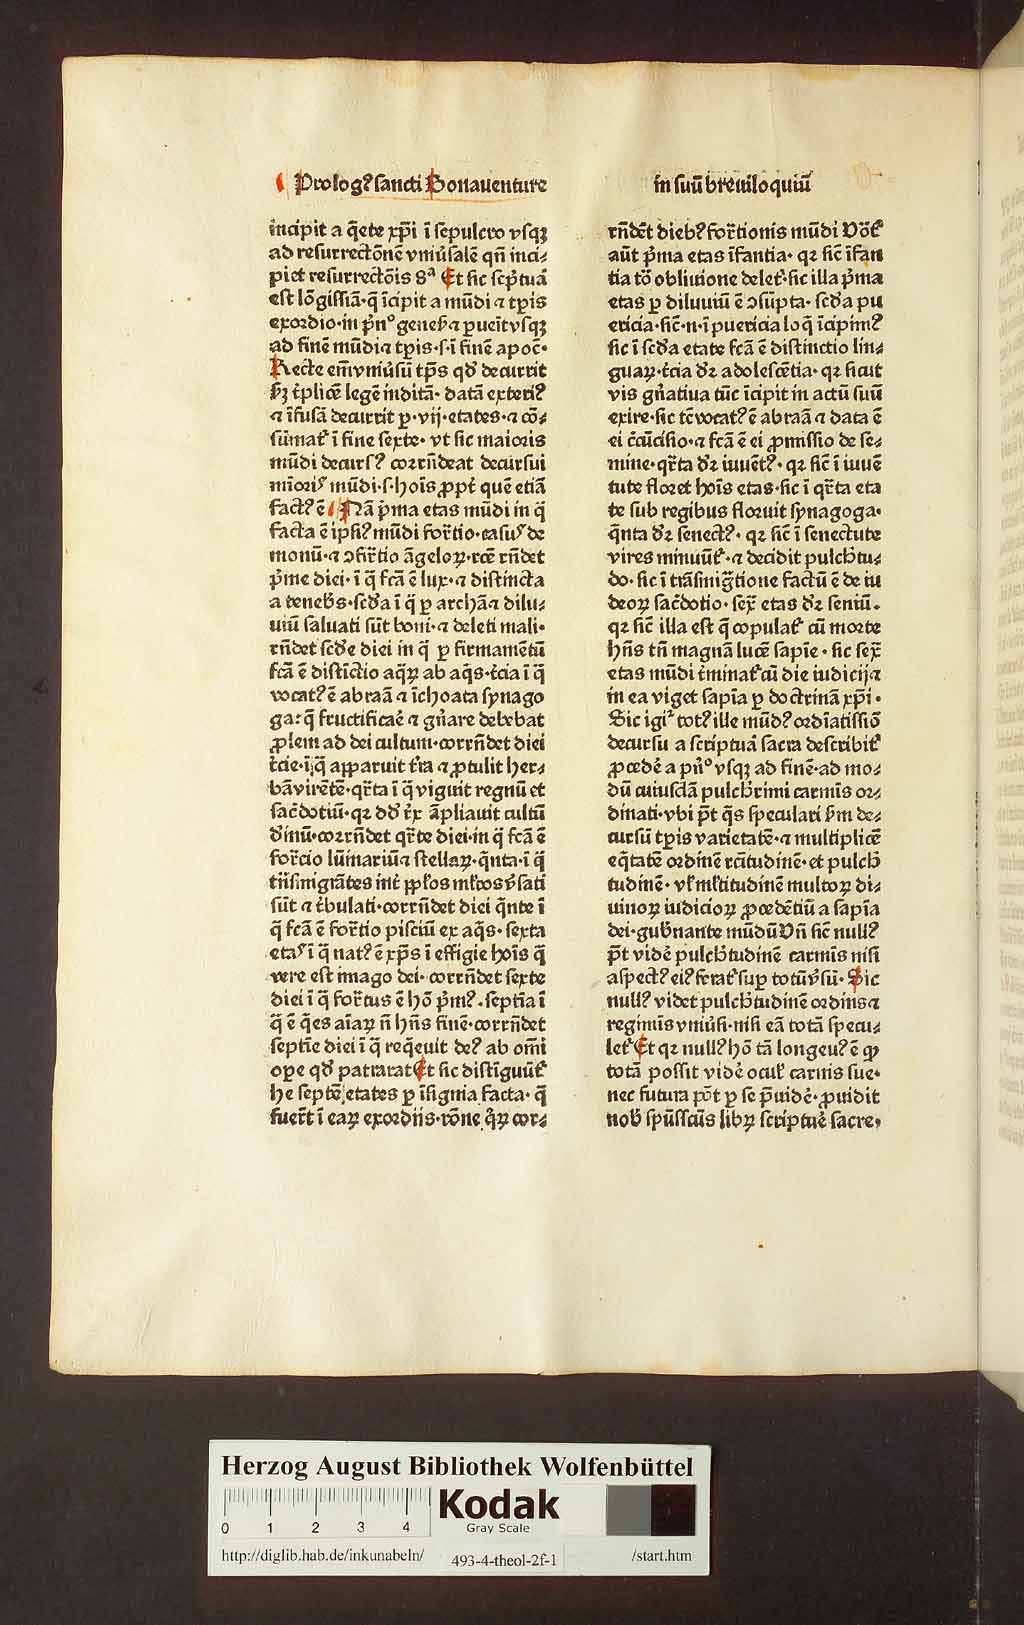 Prologꝰ sancti Bonauenture
in suū breuiloquiū
incipit a q̄ete xp̄i ī sepulcro vsqꝫ
ad resurrectōnē vniu̓salē qn̄ inci⸗
piet resurrectōis 8ª Et sic scp̄tura
est lōgissīa· q̄ īcipit a mūdi ⁊ tꝑis
exordio· in p̄nᵒ gene
ad finē mūdi ⁊ tꝑis· s· ī finē apoc̄·
Recte em̄ vniu̓sū tp̄s qd̄ decurrit
triplicē legē īnditā· datā exteriꝰ
⁊ īfusā decurrit ꝑ· vij· etates· ⁊ cō⸗
sūmat ī fine sexte· vt sic maioris
mūdi decursꝰ corrn̄deat decursui
mīoris mūdi· s· hoīs ꝓpt quē etiā
factꝰ ē Nā p̄ma etas mūdi in q̄
facta ē ipsiꝰ mūdi for̄tio· casus de
monū· ⁊ ↄfir̄tio āgeloꝝ· rn̄det
p̄me diei· ī q̄ fcā ē lux· ⁊ distincta
a teneb̓s· scd̄a ī q̄ ꝑ archā ⁊ dilu⸗
uiū saluati sūt boni· ⁊ deleti mali·
rn̄det scd̄e diei in q̄ ꝑ firmamētū
fcā ē distīctio aq̄ꝝ ab aq̄s· t̓cia ī q̄
vocatꝰ ē abraā ⁊ īchoata synago
ga· q̄ fructificaē ⁊ gn̄are debebat
ꝓlem ad dei cultum· corrn̄det diei
t̓cie· ī q̄ apparuit t̓ra ⁊ ꝓtulit her⸗
bā virētē· qr̄ta ī q̄ viguit regnū et
sac̓dotiū· qꝛ dd̄ r̄x āpliauit cultū
dīnū· corrn̄det qr̄te diei· in q̄ fcā ē
for̄cio lūinariū ⁊ stellaꝝ· q̄nta· ī q̄
trn̄smigrātes
sūt ⁊ t̓bulati· corrn̄det diei q̄nte ī
q̄ fcā ē for̄tio pisciū ex aq̄s· sexta
etas ī q̄ natꝰ ē xp̄s ī effigie hoīs q̄
vere est imago dei· corrn̄det sexte
diei ī q̄ for̄tus ē hō p̄mꝰ· septīa ī
q̄ ē q̄es aīaꝝ n̄ hn̄s finē· corrn̄det
septīe diei ī q̄ req̄euit deꝰ ab omī
oꝑe qd̄ patrarat Et sic distīguūt
he septē etates ꝑ īsignia facta· q̄
fuer̄t ī eaꝝ exordiis· rōne q̄ꝝ cor⸗
rn̄dēt diebꝰ for̄tionis mūdi
aūt p̄ma etas īfantia· qꝛ sic̄ īfan
tia tō obliuione delet· sic illa p̄ma
etas ꝑ diluuiū ē ↄsūpta· scd̄a pu
ericia· sic̄· n· ī puericia loq̄ īcipimꝰ
sic ī scd̄a etate fcā ē distinctio lin⸗
guaꝝ· t̓cia dꝛ adolescētia· qꝛ sicut
vis gn̄atiua tūc īcipit in actū suū
exire· sic tc̄ vocatꝰ ē abraā ⁊ data ē
ei c̓cūcisio· ⁊ fcā ē ei ꝓmissio de se⸗
mine· qr̄ta dꝛ iuuētꝰ· qꝛ sic̄ ī iuuē
tute floret hoīs etas· sic ī qr̄ta eta
te sub regibus floruit synagoga·
q̄nta dꝛ senectꝰ· qꝛ sic̄ ī senectute
vires minuūt· ⁊ decidit pulch̓tu⸗
do· sic ī trāsmig̓tione factū ē de iu
deoꝝ sac̓dotio· sex̄ etas dꝛ seniū·
qꝛ sic̄ illa est q̄ copulat cū morte
hn̄s tn̄ magnā lucē sapīe· sic sex̄
etas mūdi t̓minat cū die iudicij ⁊
in ea viget sapīa ꝑ doctrinā xp̄i·
Sic igiᵗ totꝰ ille mūdꝰ ordīatissīo
decursu a scriptura sacra describit
ꝓcedē a pn̄ᵒ vsqꝫ ad finē· ad mo⸗
dū cuiusdā pulch̓rimi carmīs or⸗
dinati· vbi pt̄ q̄s speculari de⸗
cursū tꝑis varietatē· ⁊ multiplicē
eq̄tatē ordinē rc̄itudinē· et pulch̓
tudinē· multoꝝ di⸗
uinoꝝ iudicioꝝ ꝓcedētiū a sapīa
dei· gub̓nante mūdū Vn̄ sic̄ nullꝰ
pt̄ vidē pulch̓tudinē carmīs nisi
aspectꝰ eiꝰ ferat suꝑ totū v̓sū· Sic
nullꝰ videt pulch̓tudinē ordinis ⁊
regimīs vniu̓si· nisi eā totā specu⸗
let Et qꝛ nullꝰ hō tā longeuꝰ ē qꝙ
totā possit vidē ocul̓ carnis sue·
nec futura pōt ꝑ se p̄uidē· ꝓuidit
nob̓ spūsscūs libꝝ scripture sacre,
Herzog August Bibliothek Wolfenbüttel
0 1 2 3 4
Kodak
Gray Scale
http://diglib.hab.de/inkunabeln/
493-4-theol-2f-1
/start.htm